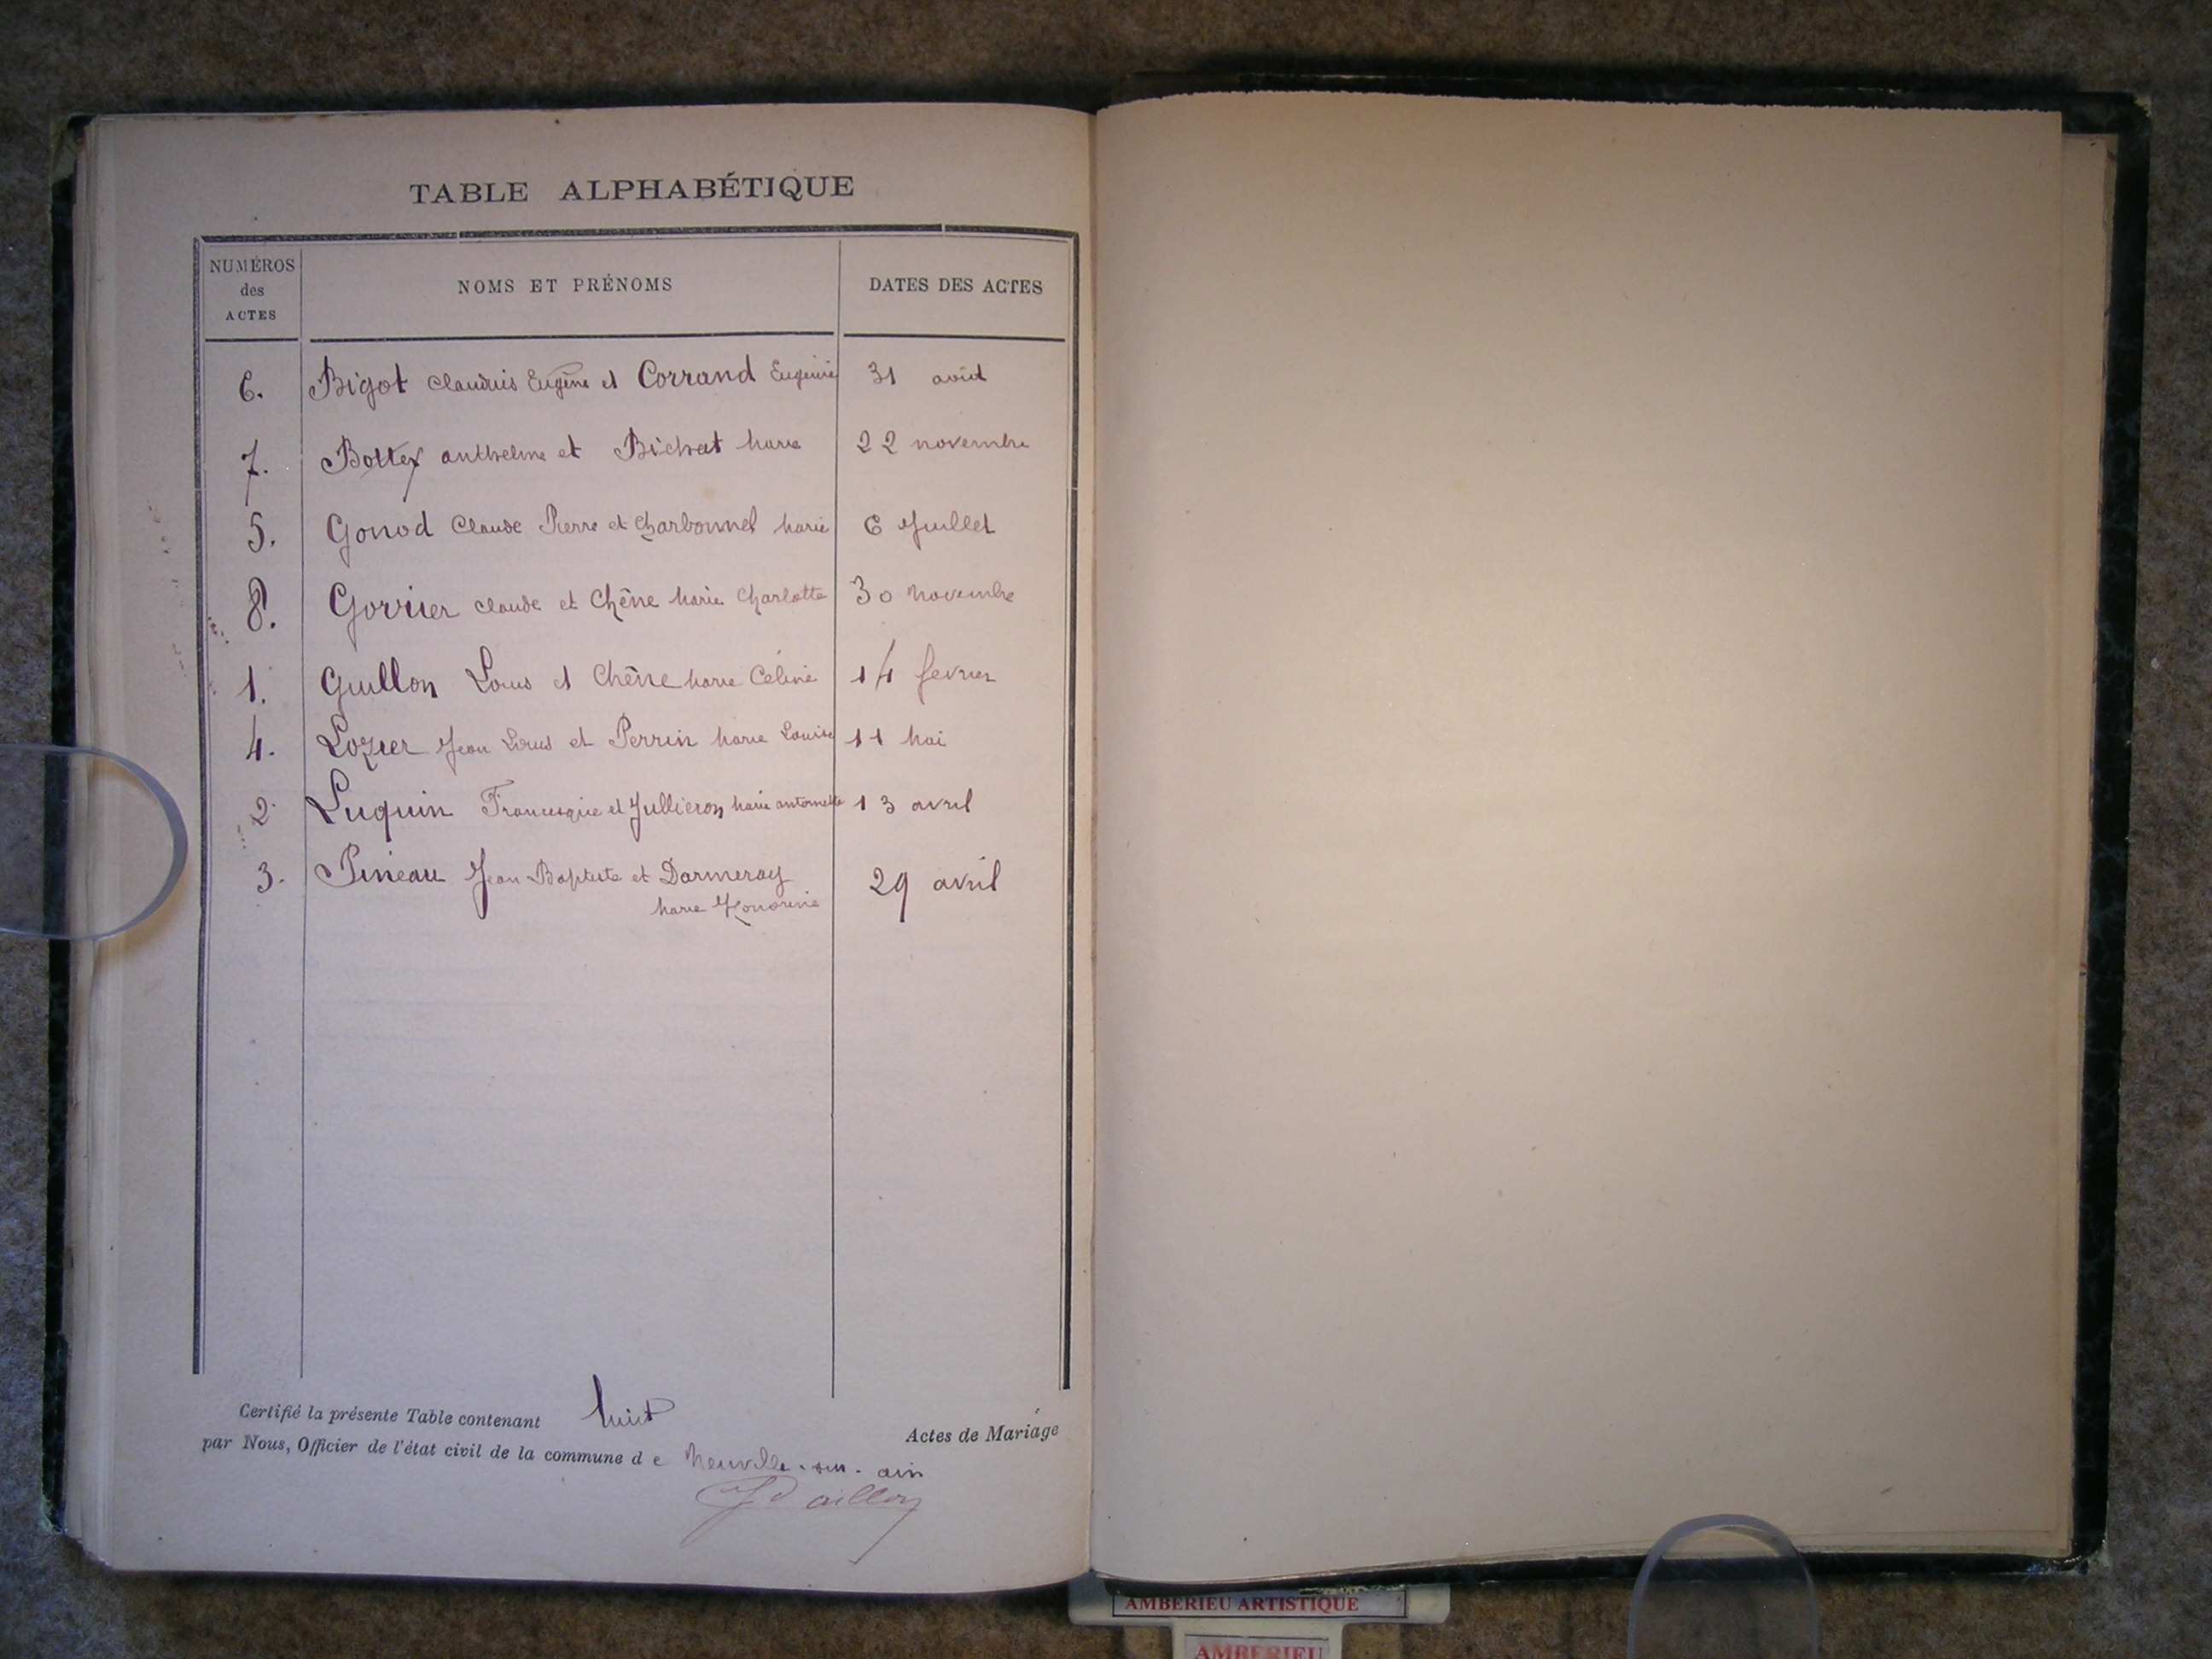 TABLE ALPHABÉTIQUE
NUMÉROS
des
ACTES
NOMS ET PRÉNOMS
DATES DES ACTES
6. Bigot Claudius Eugène et Corrand Eugénie 31 août
7. Bottex anthelme et Bichat marie 22 novembre
5. Gonod Claude Pierre et Charbonnel marie 6 Juillet
8. Govrier claude et Chêne marie Charlotte 30 novembre
1. Guillon Louis et Chêne marie Céline 14 fevrier
4. Lozier Jean Louis et Perrin marie Louise 11 mai
2. Luquin Francisque et Jullieron marie antoinette 13 avril
3. Pineau Jean Baptiste et Darmeray 29 avril
marie Honorine
Certifié la présente Table contenant huit Actes de Mariage
par Nous, Officier de l'état civil de la commune de Neuville-sur-ain
AMBERIEU ARTISTIQUE
AMBERIEU